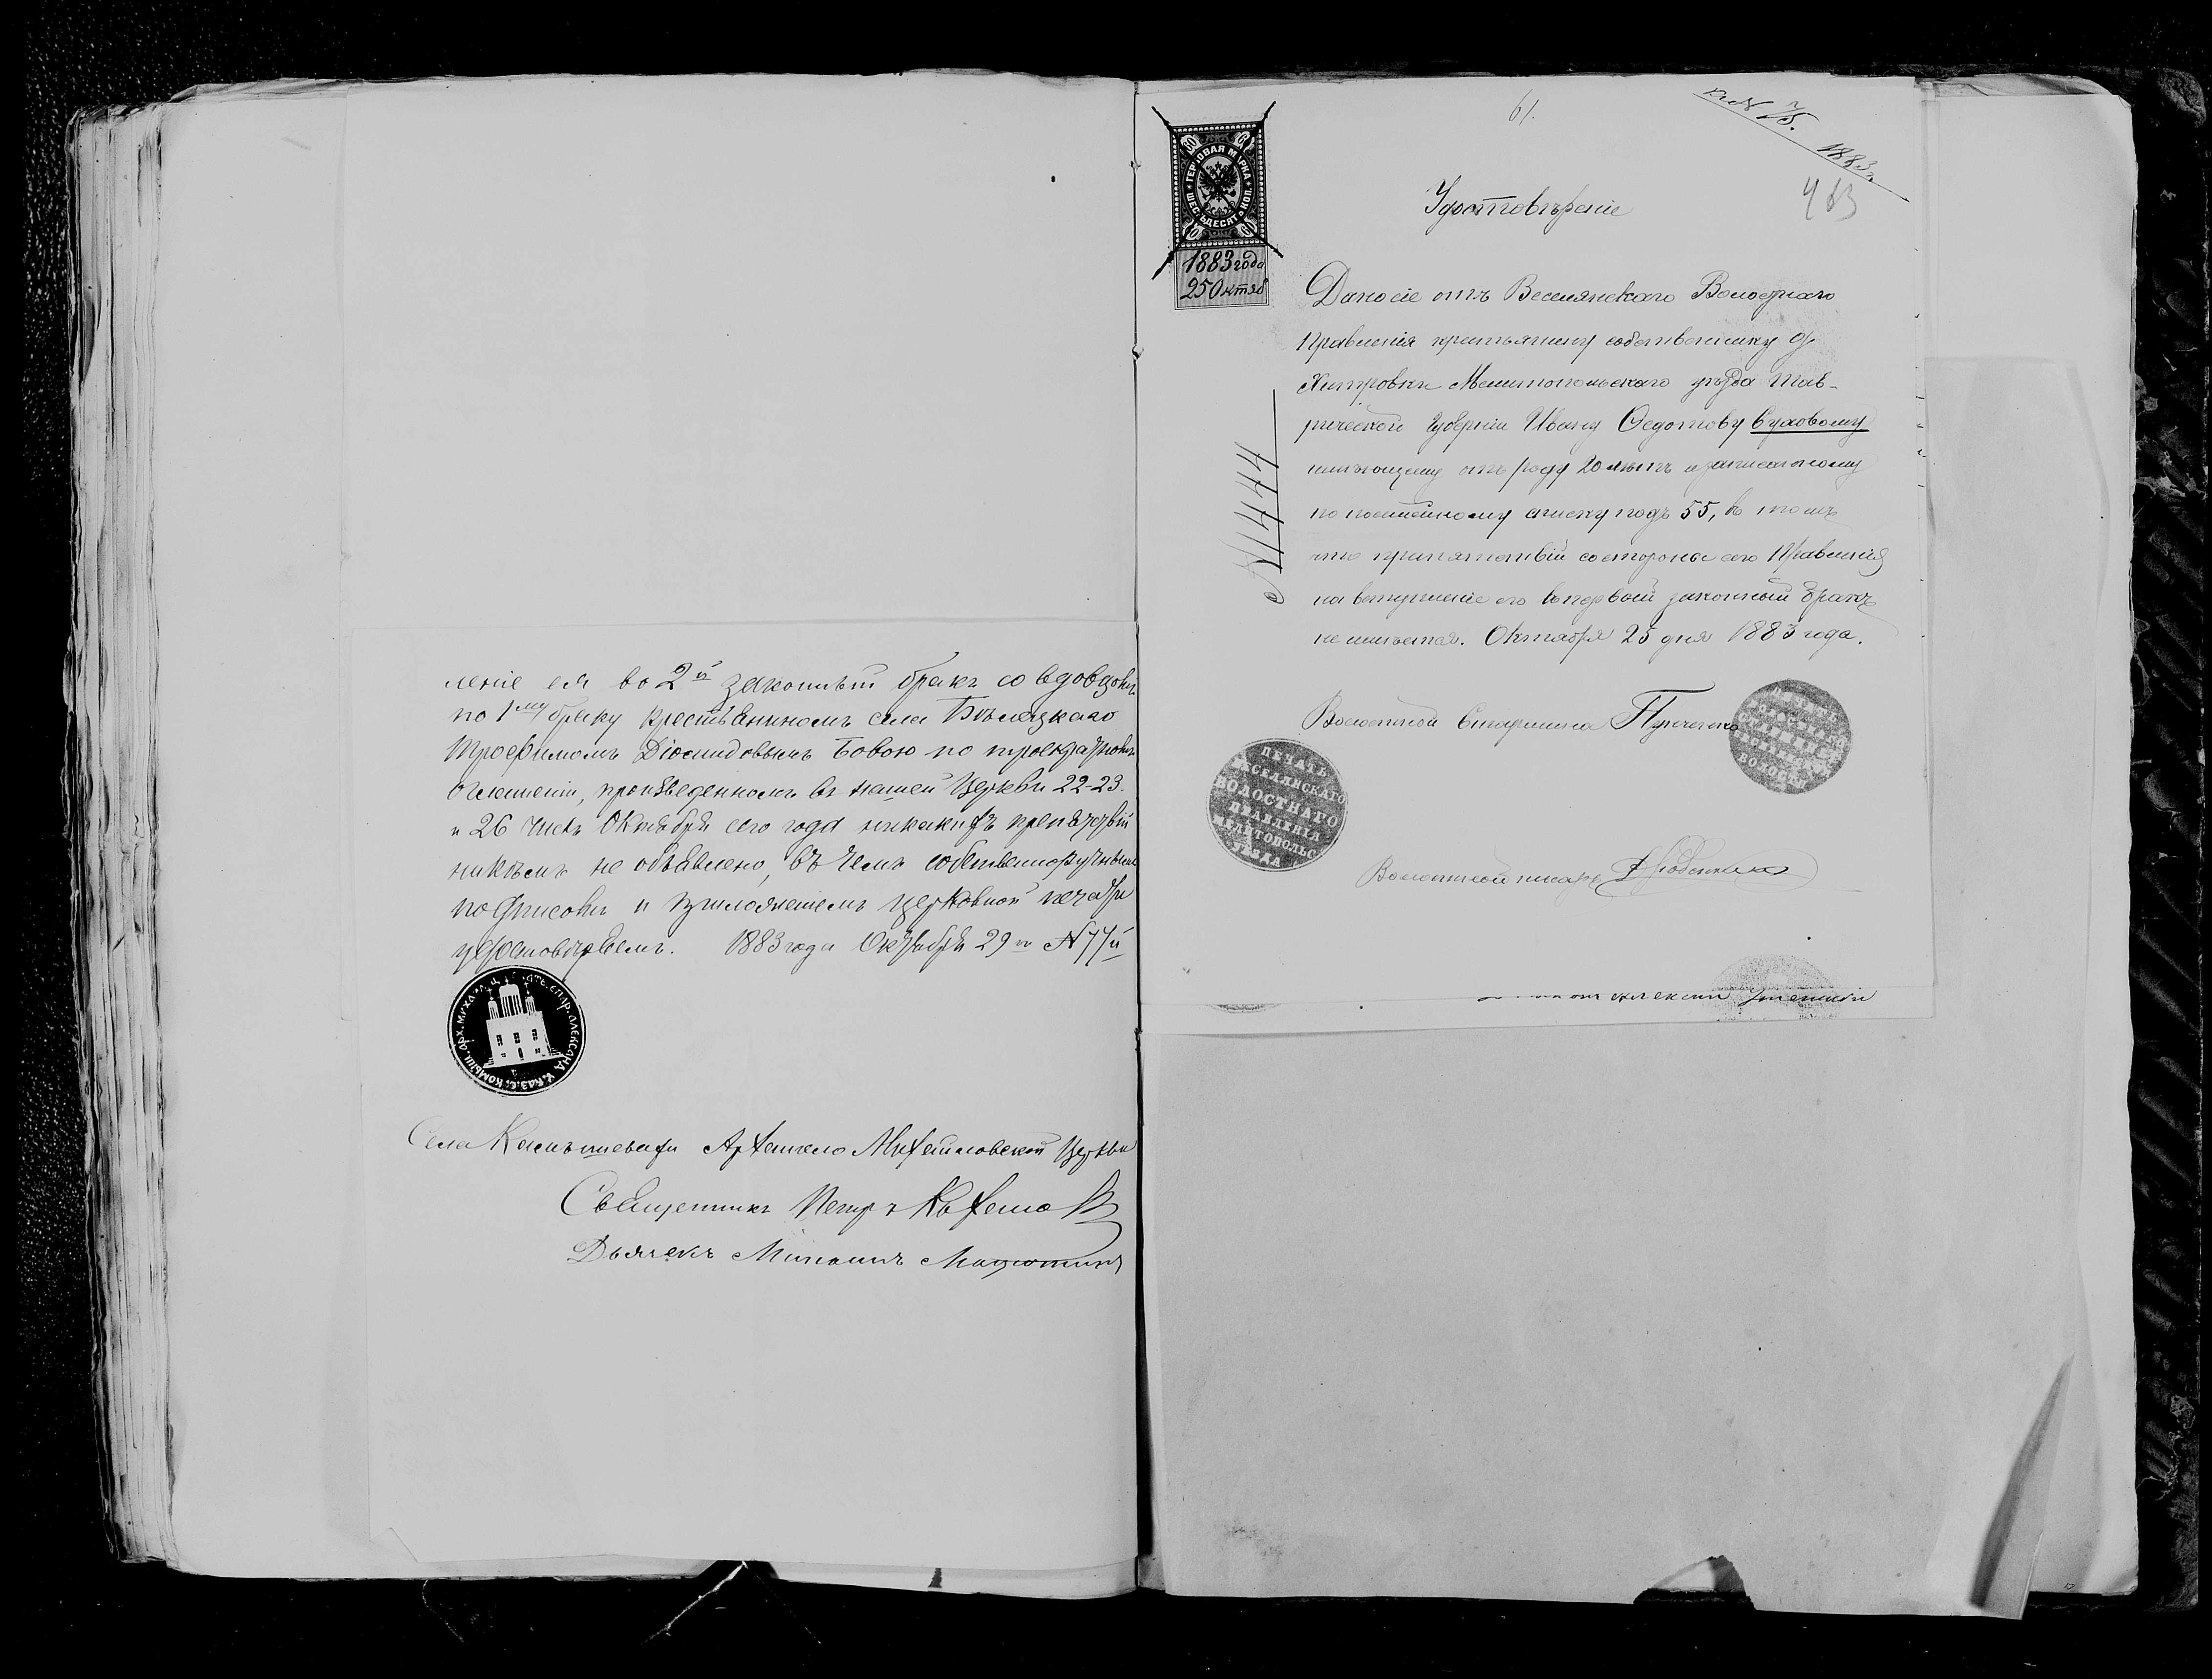 леніе ея во 2й законный бракъ со вдовцомъ
по 1му браку крестьяниномъ села Бѣлецкаго
Трофимомъ Діомидовымъ Бовою по троекратномъ
оглашеніи, произведенномъ въ нашей Церкви 22-23.
и 26 чиселъ Октября сего года никакихъ препятствій
никѣмъ не объявлено, въ чемъ собственноручнымъ
подписомъ и приложеніемъ церковной печати
удостовѣряемъ. 1883 года Октября 29 го № 77й
Села Камышевахи Архангело Михайловской Церкви
Священникъ Петръ
Дьячекъ
61.
1883 г.
463
ГЕРБОВАЯ МАРКА
ШЕСТЬДЕСЯТЪ КОП.
60
1883 года
25 Октяб
Удостовѣреніе
Дано сіе отъ Веселянскаго Волостнаго
Правленія крестьянину собственнику д.
Хитровки Мелитопольскаго уѣзда Тав-
рической Губерніи Ивану Федотову Суховому
имѣющему отъ роду 20 лѣтъ и записанному
по посемейному списку подъ 55, въ томъ
что препятствій со стороны сего Правленія
на вступленіе его въ первый законный бракъ
не имѣется. Октября 25 дня 1883 года.
№ 1444
Волостной Старшина
ПЕЧАТЬ
ВЕСЕЛЯНСКАГО
ВОЛОСТНАГО
ПРАВЛЕНІЯ
МЕЛИТОПОЛЬС
УѢЗДА
Волостной писарь